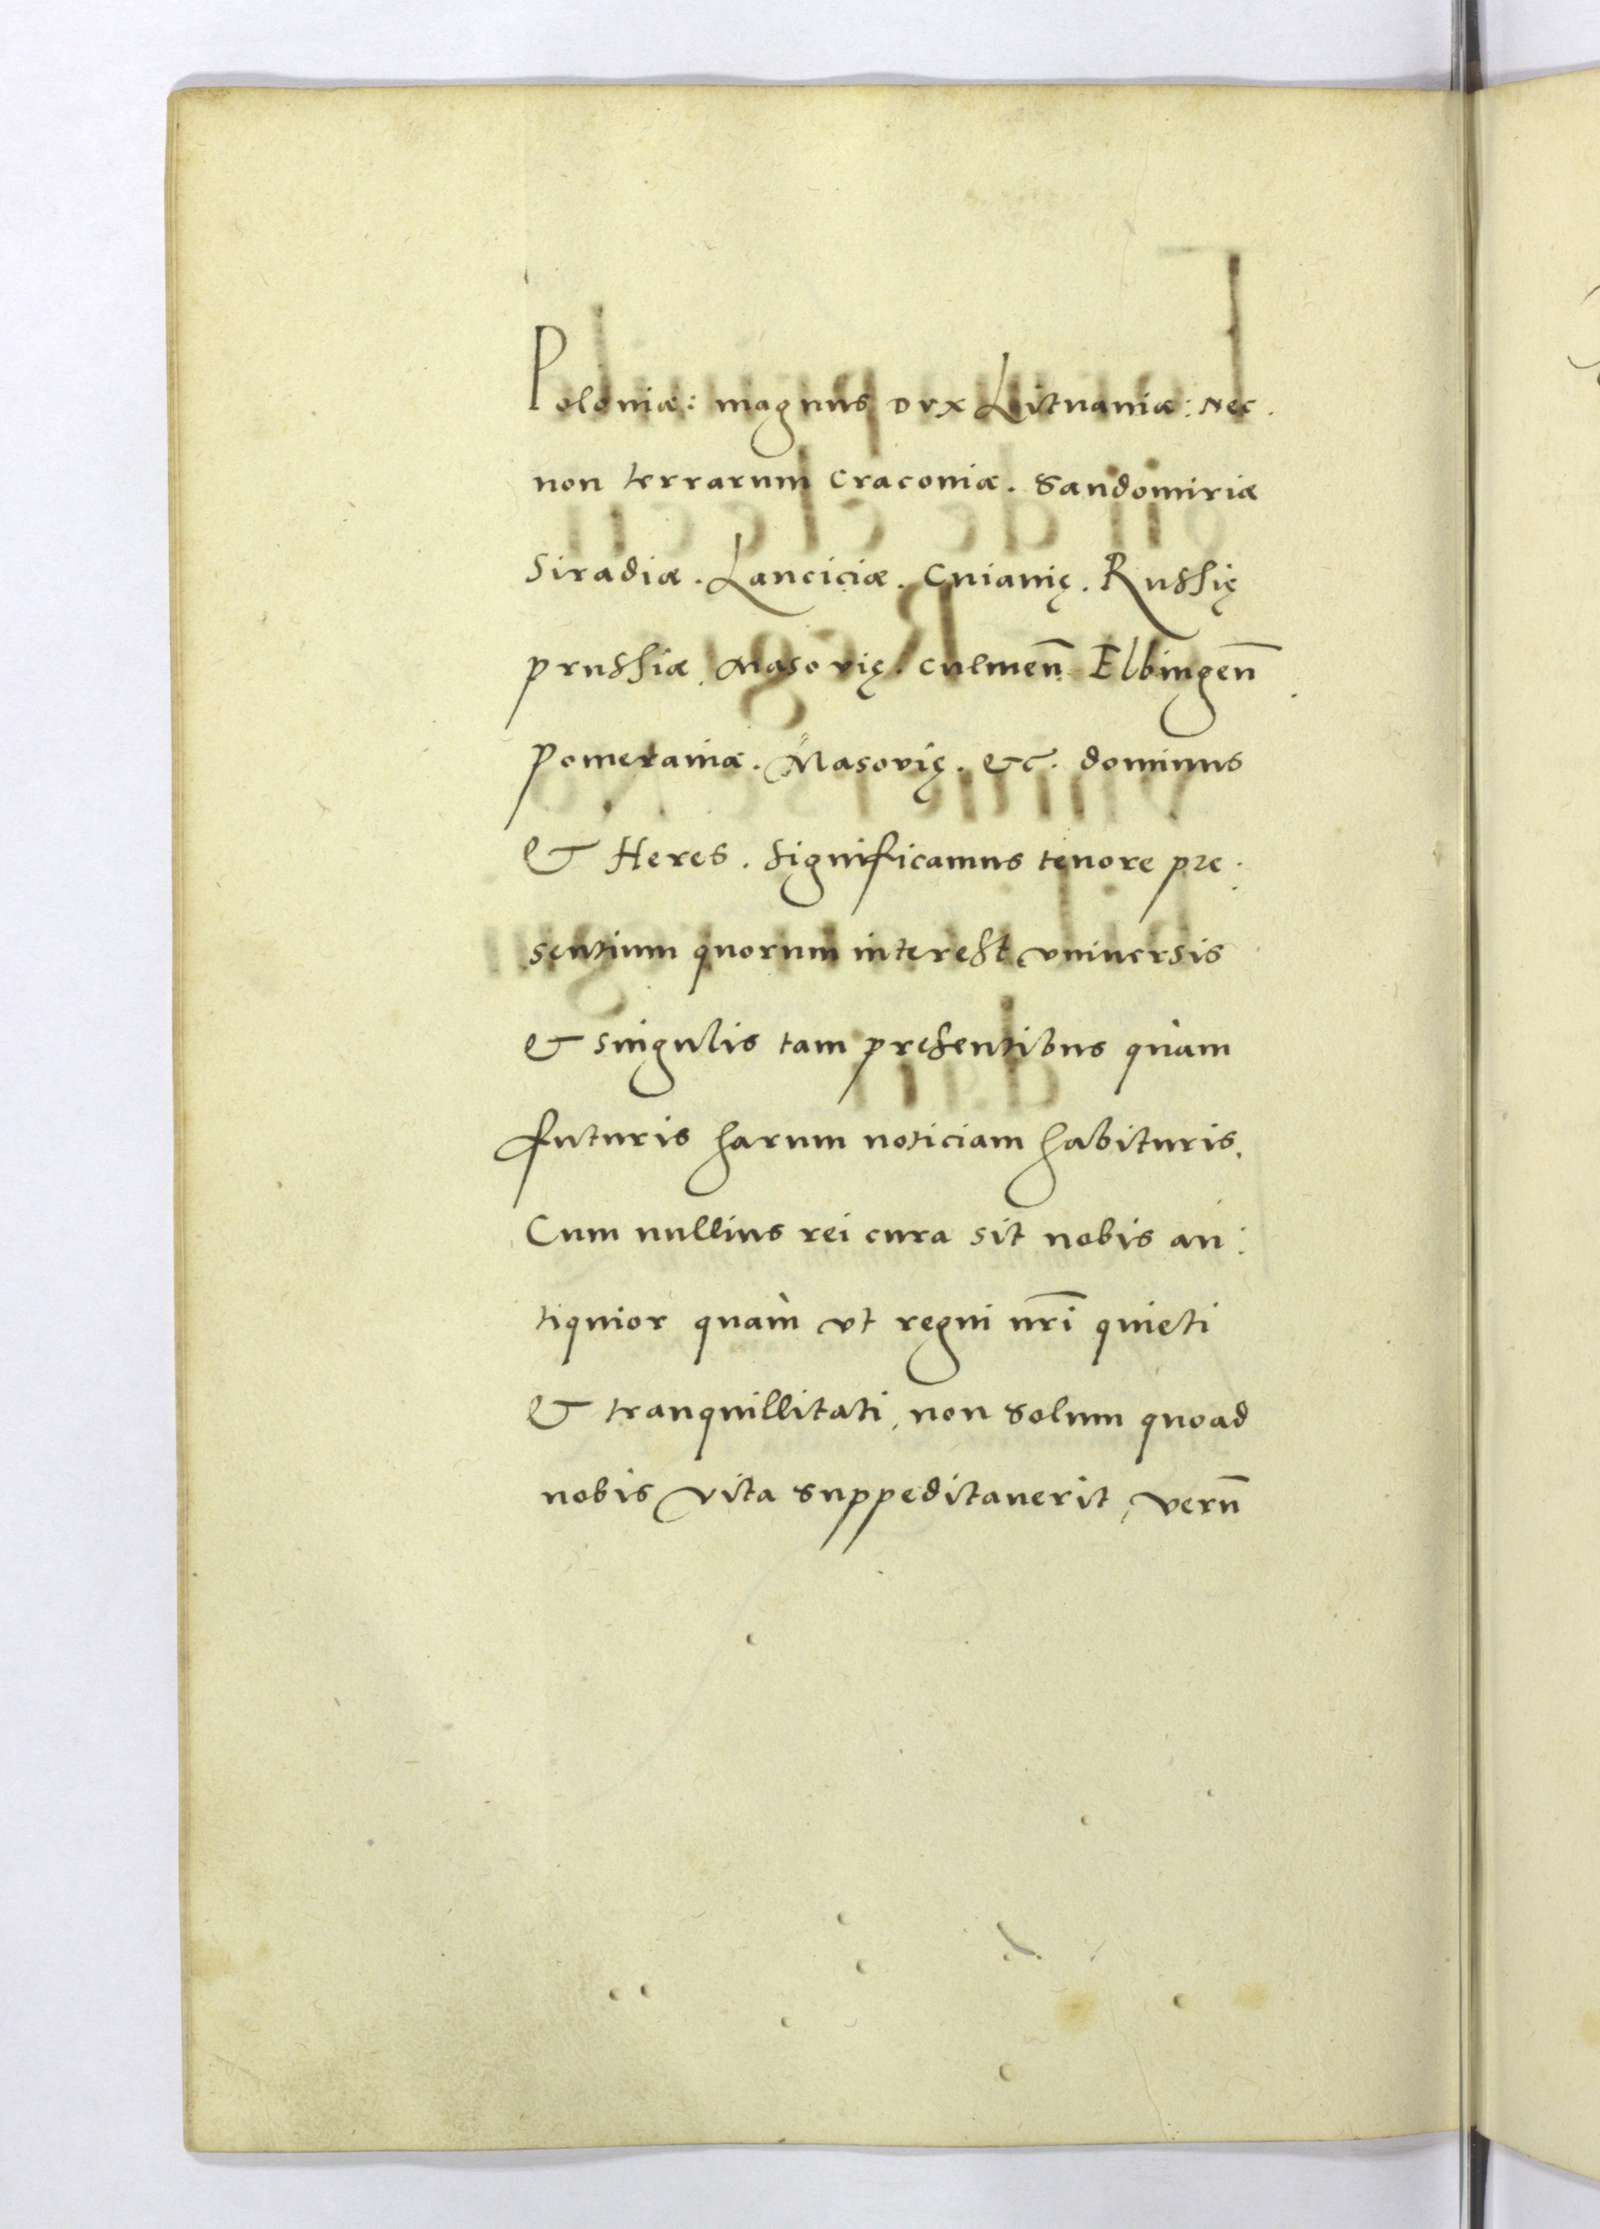 Poloniæ: magnus Dvx Lituaniæ: Nec.
non terrarum Craconiæ. Sandomiriæ
Siradiæ. Lanciciæ. Cuianię. Russię
prussiæ. Masovię. Culmen̄. Elbingen̄.
pomeraniæ. Masovię. &c. dominus
& Heres. Significamus tenore pre.
sentium quorum interest vniuersis
& singulis tam presentibus quàm
futuris harum noticiam habituris.
Cum nullius rei cura sit nobis an:
tiquior quàm vt regni nr̄i quieti
& tranquillitati, non solum quoad
nobis vita suppeditauerit, verū